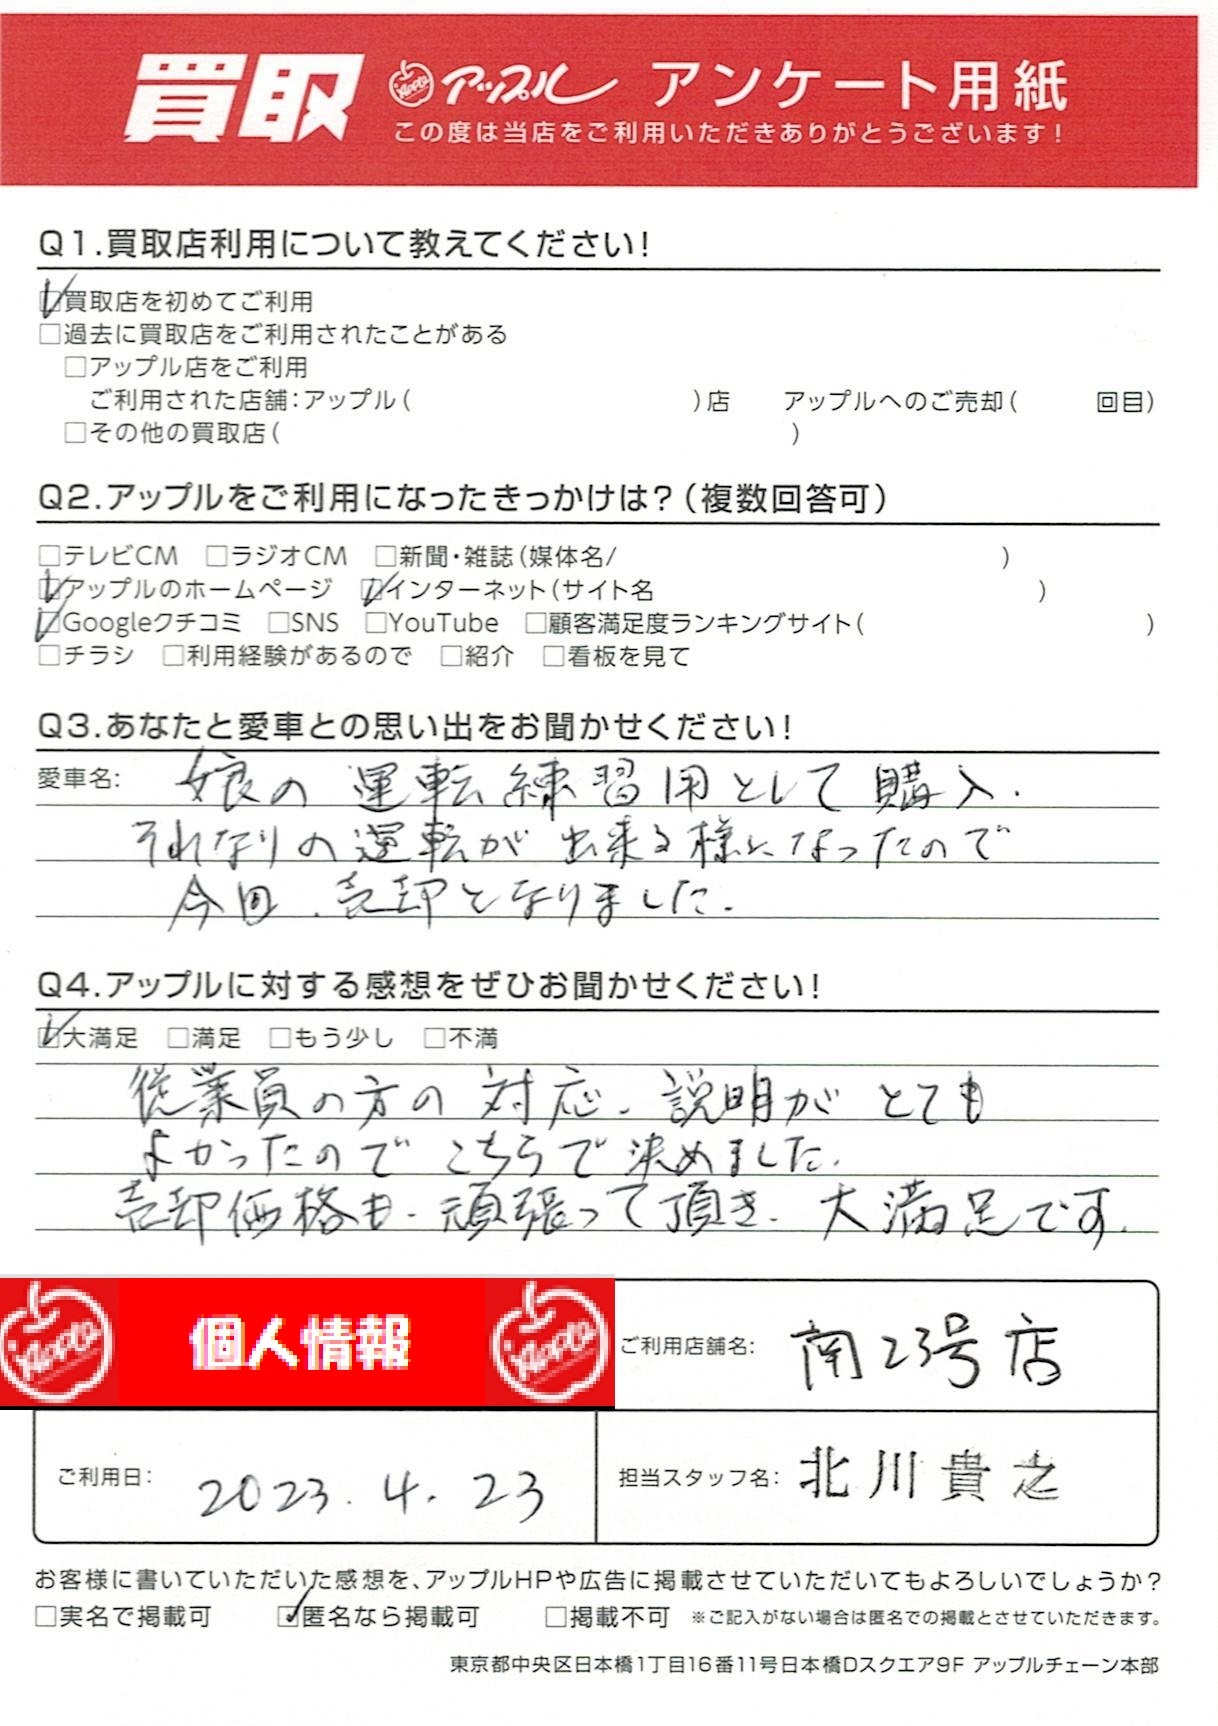 買取 Apple アップル アンケート用紙
この度は当店をご利用いただきありがとうございます!
Q1.買取店利用について教えてください!
☑買取店を初めてご利用
□過去に買取店をご利用されたことがある
□アップル店をご利用
ご利用された店舗:アップル( )店 アップルへのご売却( 回目)
□その他の買取店( )
Q2.アップルをご利用になったきっかけは?(複数回答可)
□テレビCM □ラジオCM □新聞・雑誌(媒体名/ )
☑アップルのホームページ ☑インターネット(サイト名 )
☑Googleクチコミ □SNS □YouTube □顧客満足度ランキングサイト( )
□チラシ □利用経験があるので □紹介 □看板を見て
Q3.あなたと愛車との思い出をお聞かせください!
愛車名: 娘の運転練習用として購入.
それなりの運転が出来る様になったので
今回、売却となりました.
Q4.アップルに対する感想をぜひお聞かせください!
☑大満足 □満足 □もう少し □不満
従業員の方の対応、説明がとても
よかったのでこちらで決めました.
売却価格も、頑張って頂き、大満足です.
Apple 個人情報 Apple ご利用店舗名: 南23号店
ご利用日: 2023.4.23 担当スタッフ名: 北川貴之
お客様に書いていただいた感想を、アップルHPや広告に掲載させていただいてもよろしいでしょうか?
□実名で掲載可 ☑匿名なら掲載可 □掲載不可 ※ご記入がない場合は匿名での掲載とさせていただきます。
東京都中央区日本橋1丁目16番11号日本橋Dスクエア9F アップルチェーン本部